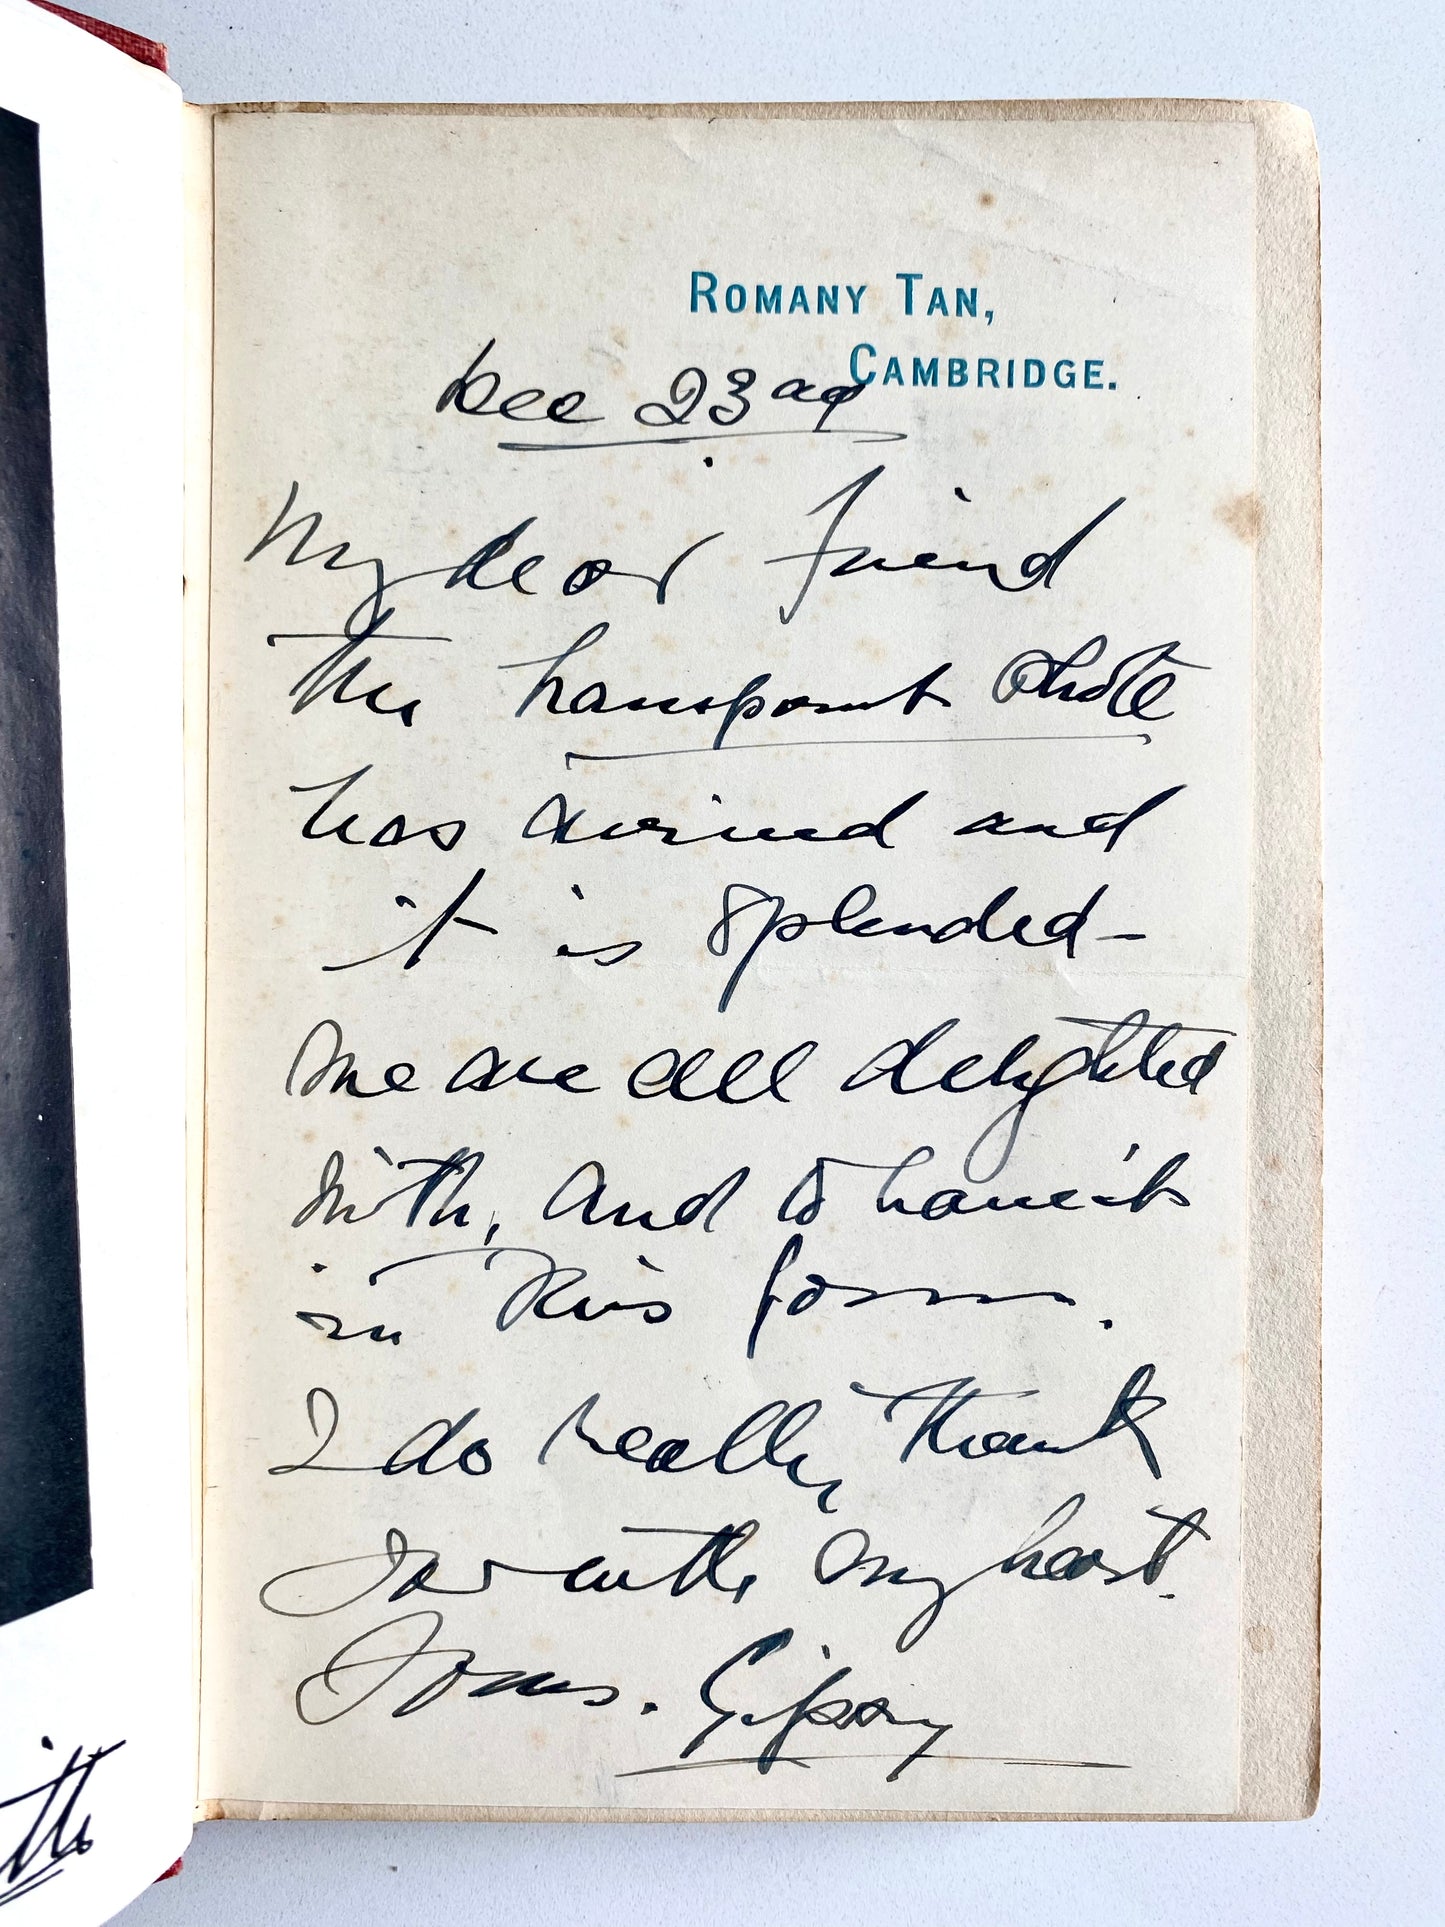 ROMANY TAN,
CAMBRIDGE.
Dec 23rd
My dear Friend
The transparent Photo
has arrived and
it is splended -
we are all delighted
with, and to have it
in this form.
I do really thank
You with my heart.
Yours. Gipsy
ith